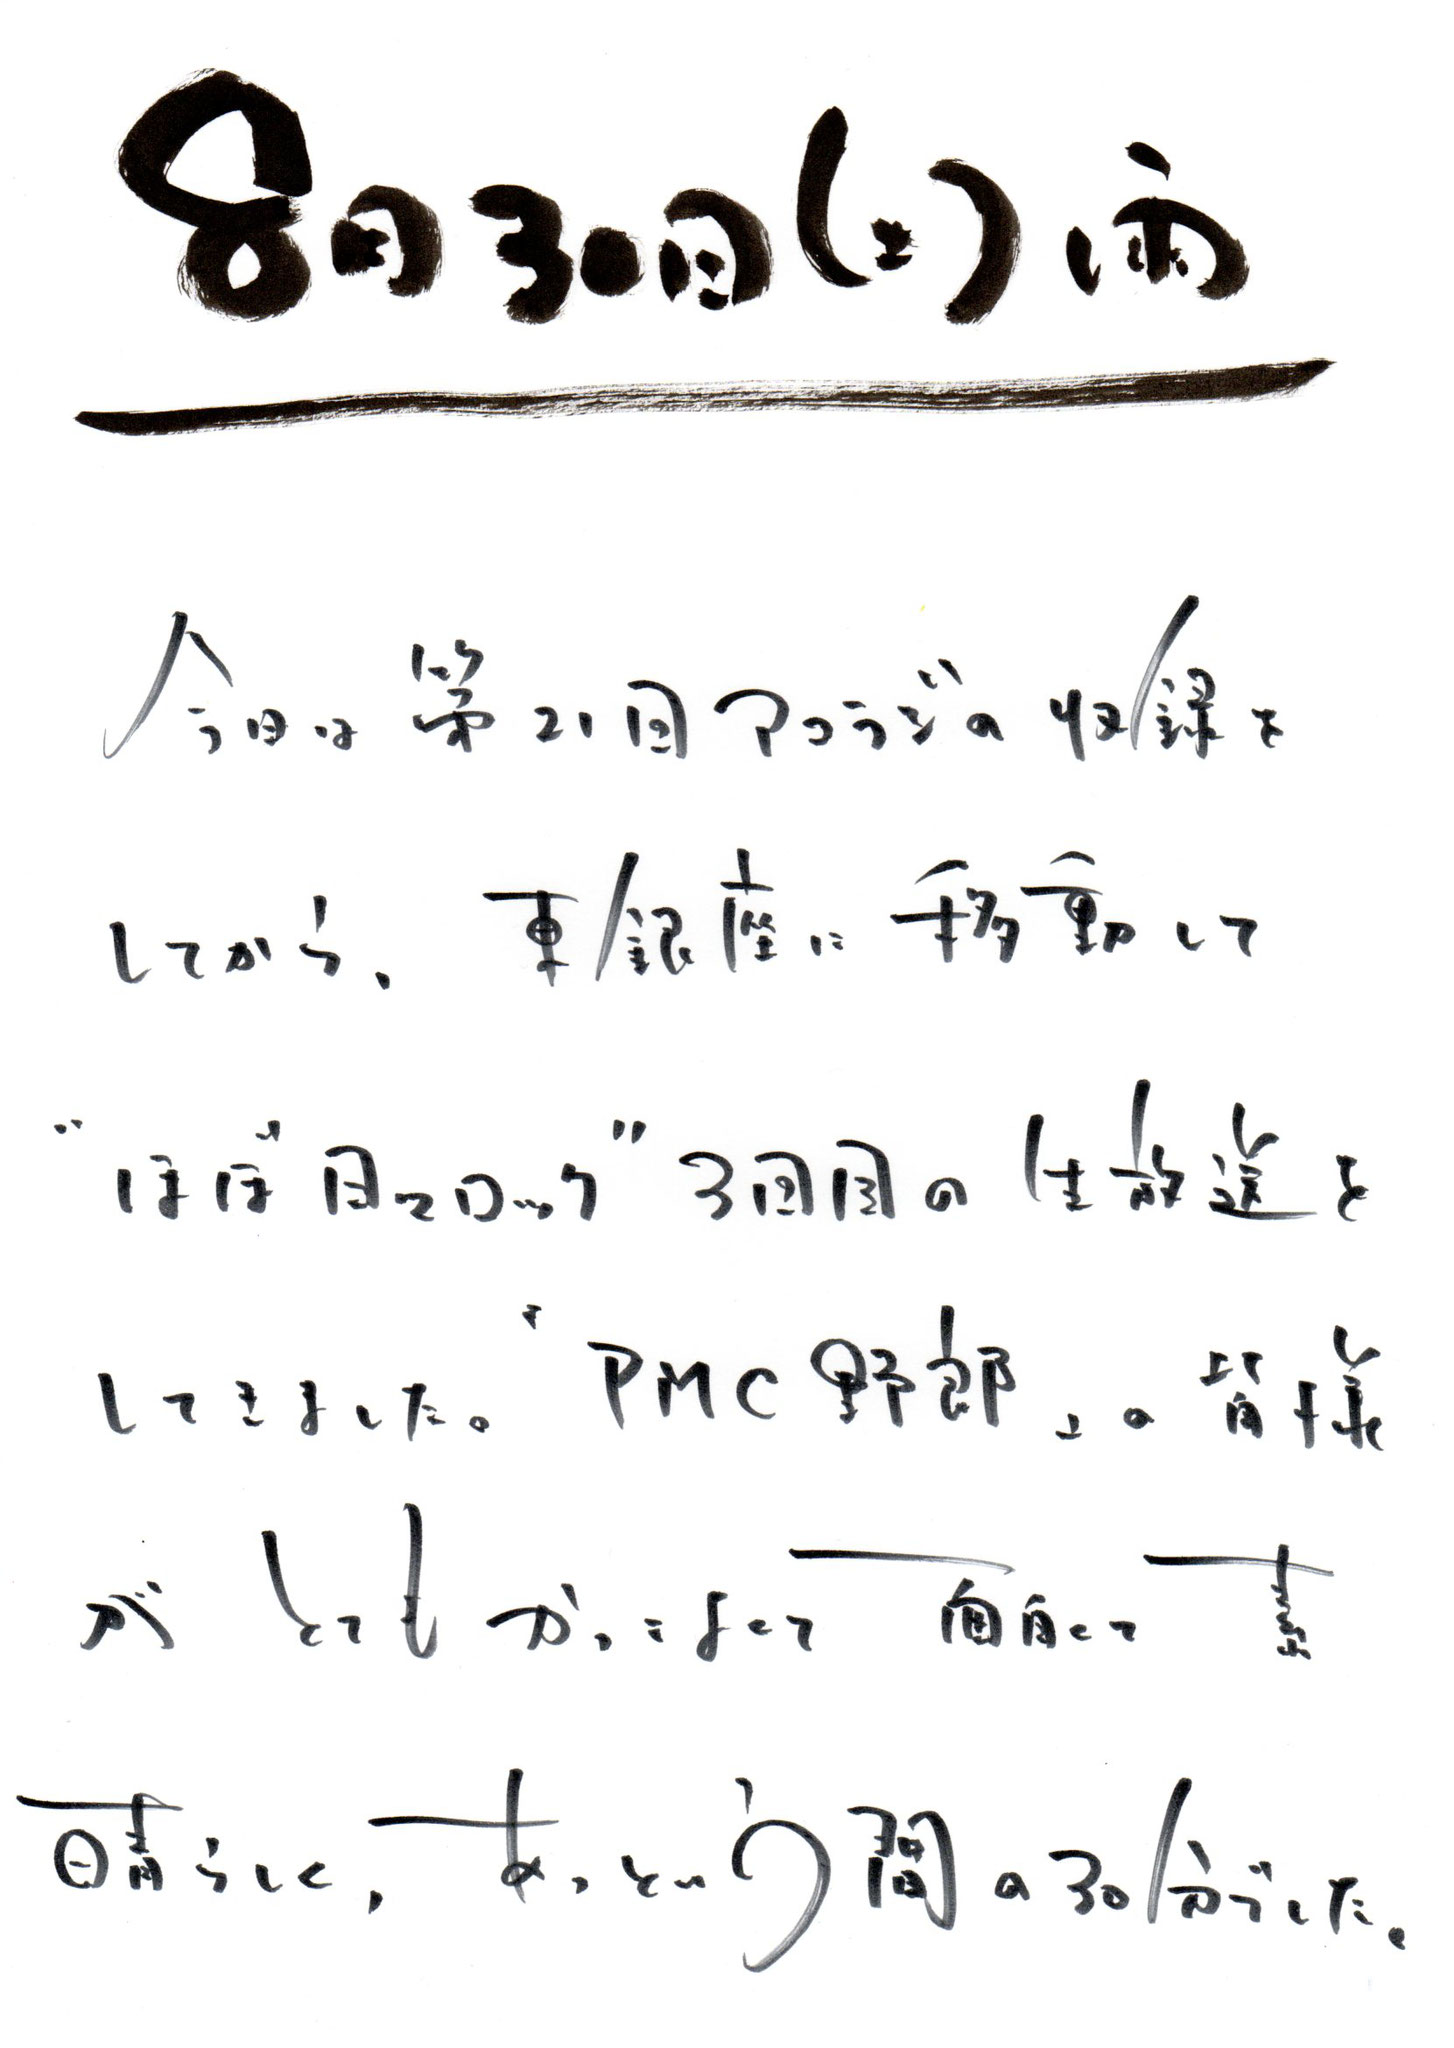 8月30日(土)雨
今日は第21回アコラジの収録を
してから、東銀座に移動して
"ほぼ日でロック"3回目の生放送を
してきました。『PMC野郎』の皆様
がとてもかっこよくて面白くて素
晴らしく、あっという間の30分でした。